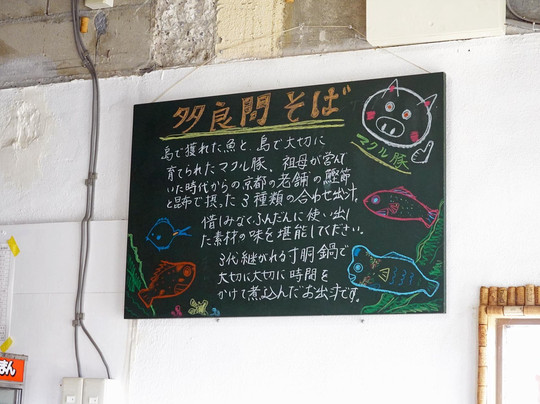 多良間そば
島で獲れた魚と、島で大切に
育てられたマクル豚、祖母が営んで
いた時代からの京都の老舗の鰹節
と昆布で摂った3種類の合わせ出汁。
惜しみなくふんだんに使い出し
た素材の味を堪能してください。
3代継がれる寸胴鍋で
大切に大切に時間を
かけて煮込んだお出汁です。
マクル豚
まん